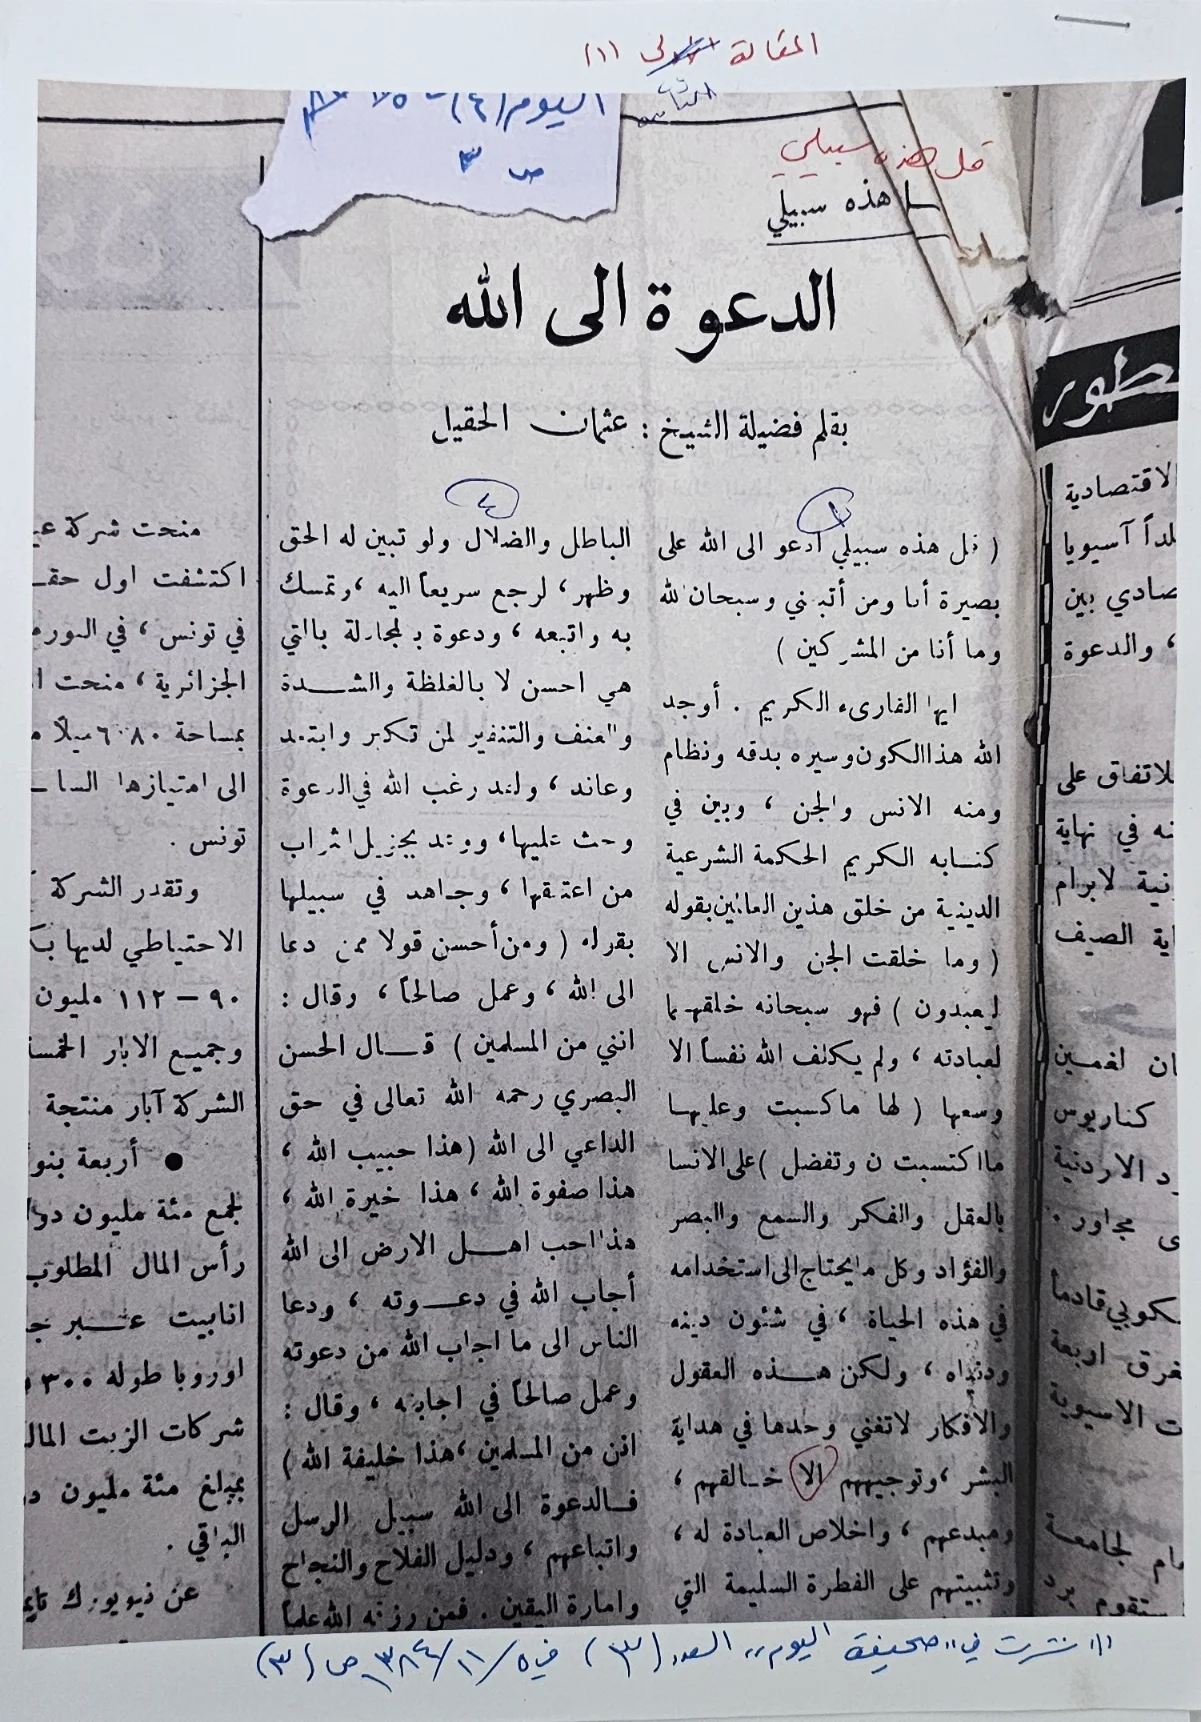 المقالة الأولى (١)
الثانية
اليوم (٤)
ص ٣
قل هذه سبيلي
هذه سبيلي
الدعوة الى الله
بقلم فضيلة الشيخ : عثمان الحقيل
١
( قل هذه سبيلي ادعو الى الله على
بصيرة أنا ومن أتبعني وسبحان الله
وما أنا من المشركين )
ايها القارىء الكريم . أوجد
الله هذا الكون وسيره بدقه ونظام
ومنه الانس والجن ، وبين في
كتابه الكريم الحكمة الشرعية
الدينية من خلق هذين العالمين بقوله
( وما خلقت الجن والانس الا
ليعبدون ) فهو سبحانه خلقهما
لعبادته ، ولم يكلف الله نفساً الا
وسعها ( لها ماكسبت وعليها
مااكتسبت ن وتفضل ) على الانسا
بالعقل والفكر والسمع والبصر
والفؤاد وكل مايحتاج الى استخدامه
في هذه الحياة ، في شئون دينه
ودنياه ، ولكن هذه العقول
والافكار لاتغني وحدها في هداية
البشر ، وتوجيههم الا خالقهم ،
ومبدعهم ، واخلاص العبادة له ،
وتثبيتهم على الفطرة السليمة التي
الباطل والضلال ولو تبين له الحق
وظهر، لرجع سريعاً اليه ، وتمسك
به واتبعه ، ودعوة بالمجادلة بالتي
هي احسن لا بالغلظة والشدة
والعنف والتنفير لمن تكبر وابتعد
وعاند ، ولقد رغب الله في الدعوة
وحث عليها، ووعد بجزيل الثواب
من اعتنقها ، وجاهد في سبيلها
بقوله ( ومن أحسن قولا ممن دعا
الى الله ، وعمل صالحاً ، وقال :
انني من المسلمين ) قال الحسن
البصري رحمه الله تعالى في حق
الداعي الى الله (هذا حبيب الله ،
هذا صفوة الله ، هذا خيرة الله ،
هذا احب اهل الارض الى الله
أجاب الله في دعوته ، ودعا
الناس الى ما اجاب الله من دعوته
وعمل صالحاً في اجابته ، وقال :
انن من المسلمين ، هذا خليفة الله )
فالدعوة الى الله سبيل الرسل
واتباعهم ، ودليل الفلاح والنجاح
وامارة اليقين . فمن رزقه الله علماً
منحت شركة عي
اكتشفت اول حقـ
في تونس ، في البورمـ
الجزائرية ، منحت ا
بمساحة ٦٠٨٠ ميلا م
الى امتيازها السا
تونس .
وتقدر الشركة
الاحتياطي لديها بـ
٩٠ – ١١٢ مليون
وجميع الابار الخمسة
الشركة آبار منتجة
● أربعة بنو
لجمع مئة مليون دو
رأس المال المطلوب
انابيت عبر جـ
اوروبا طوله ٣٠٠
شركات الزيت المالـ
بمبلغ مئة مليون د
الباقي .
عن نيويورك تايمـ
ـطور
الاقتصادية
لداً آسيويا
صادي بين
، والدعوة
للاتفاق على
نه في نهاية
نية لابرام
اية الصيف
ان لغمين
كناريوس
د الاردنية
ى مجاور .
كوبي قادماً
غرق اربعة
ت الاسيوية
ام لجامعة
ستقوم برد
(١) نشرت في "صحيفة اليوم" العدد (٣) في ٥/١١/١٣٨٤ ص (٣)